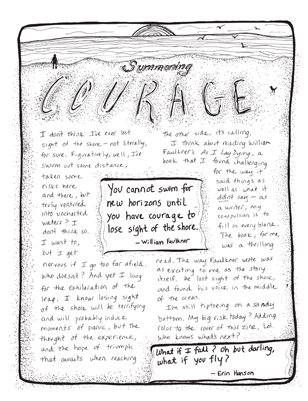 Summoning
COURAGE
I don't think I've ever lost
sight of the shore — not literally,
for sure. Figuratively, well, I've
swum out some distance,
taken some
risks here
and there, but
truly ventured
into uncharted
waters? I
don't think so.
I want to,
but I get
nervous if I go too far afield.
Who doesn't? And yet I long
for the exhilaration of the
leap. I know losing sight
of the shore will be terrifying
and will probably induce
moments of panic, but the
thought of the experience,
and the hope of triumph
that awaits when reaching
You cannot swim for
new horizons until
you have courage to
lose sight of the shore.
— William Faulkner
the other side, it's calling.
I think about reading William
Faulkner's As I Lay Dying, a
book that I found challenging
for the way it
said things as
well as what it
didn't say — as
a writer, my
compulsion is to
fill in every blank.
The book, for me,
was a thrilling
read. The way Faulkner wrote was
as exciting to me as the story
itself. He lost sight of the shore,
and found his voice in the middle
of the ocean.
I'm still tiptoeing on a sandy
bottom. My big risk today? Adding
color to the cover of this zine, lol.
Who knows what's next?
What if I fall? Oh but darling,
what if you fly?
— Erin Hanson